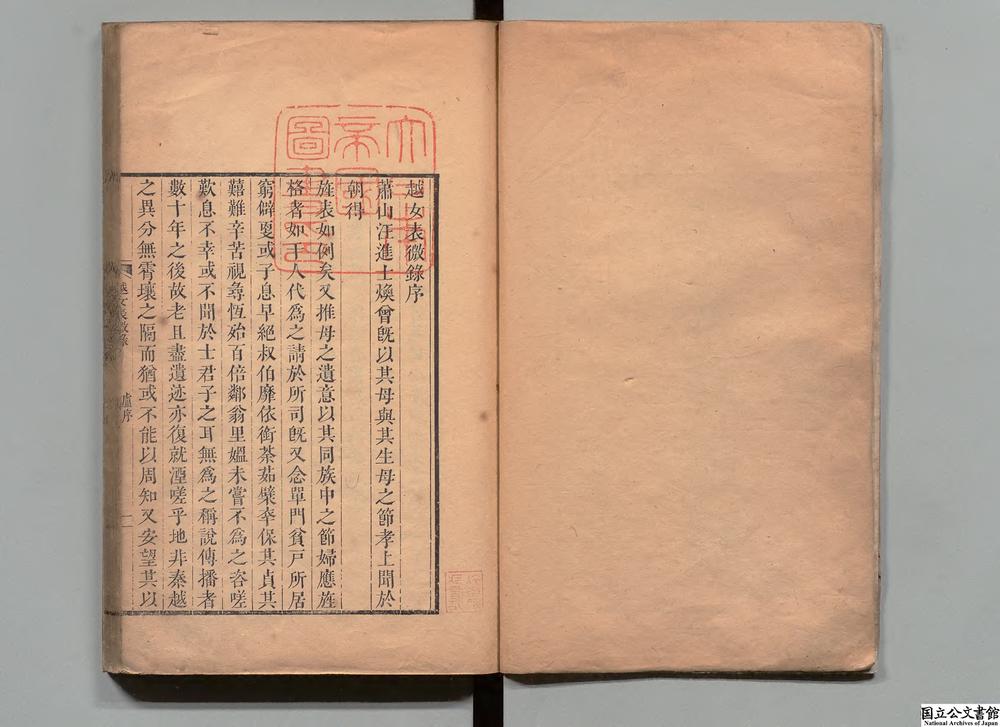 越女表微錄序
蕭山汪進士煥曾旣以其母與其生母之節孝上聞於
朝得
旌表如例矣又推母之遺意以其同族中之節婦應旌
格者如干人代爲之請於所司旣又念單門貧戸所居
窮僻更或子息早絕叔伯靡依銜荼茹櫱卒保其貞其
囏難辛苦視尋恆殆百倍鄰翁里媼未嘗不爲之咨嗟
歎息不幸或不聞於士君子之耳無爲之稱說傳播者
數十年之後故老且盡遺迹亦復就湮嗟乎地非秦越
之異分無霄壤之隔而猶或不能以周知又安望其以
越女表微錄
盧序
一
大日本
帝國
圖書印
国立公文書館
National Archives of Japan